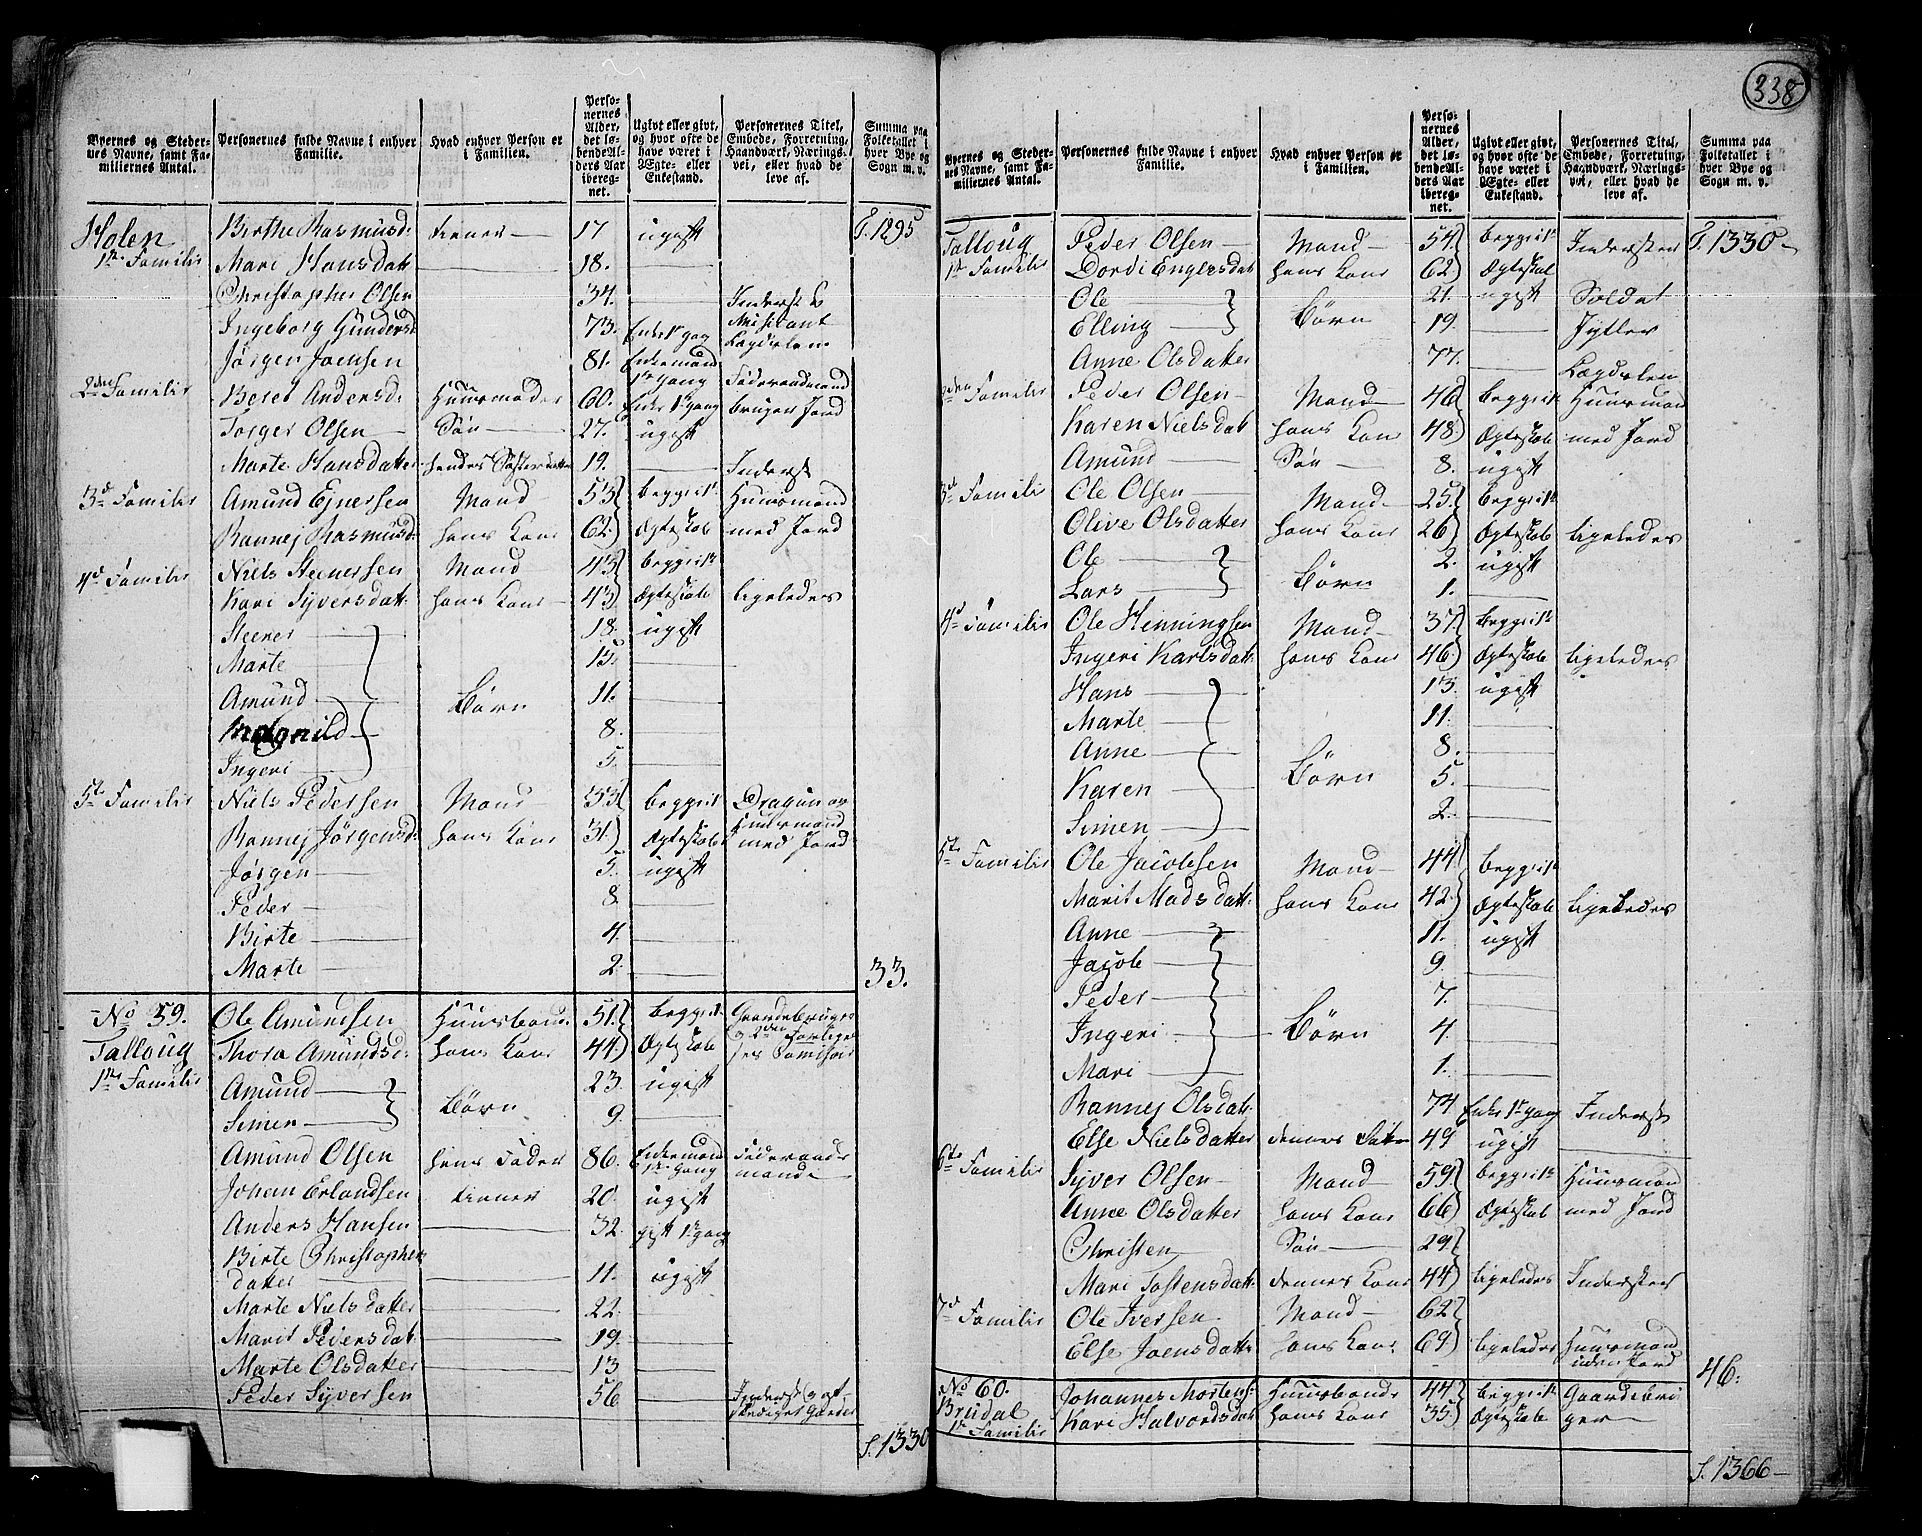 338
Byernes og Stedernes Navne, samt Familiernes Antal.
Personernes fulde Navne i enhver Familie.
Hvad enhver Person er i Familien.
Personernes Alder, det løbende Alders Aar iberegnet.
Ugivt eller givt, og hvor ofte de have været i Ægte- eller Enkestand.
Personernes Titel, Embede, Forretning, Haandværk, Næringsvei, eller hvad de leve af.
Summa paa Folketallet i hver Bye og Sogn m. v.
Holen Birthe Rasmusd: tiener 17 ugift T. 1295
1ste Familie Mari Hansdatt 18.
Christopher Olsen 34. Inderst &
Ingeborg Gundersd 73. Enke 1te gang Musikant
Lægdslem
Jørgen Joensen 81. Enkemand 1te gang Føderaadmand
2den Familie Beret Andersd: Huusmoder 60. Enke 1te gang bruger Jord
Torger Olsen Søn 27. ugift
Marte Hansdatter hendes Søsterdatter 19. Inderst
3die Familie Amund Ejnersen Mand 53 begge i 1te Huusmand
Rannej Rasmusd: hans Kone 62 Ægteskab med Jord
4de Familie Niels Steenersen Mand 43 begge i 1te
Kari Syversdatt: hans Kone 43 Ægteskab ligeledes
Steener 18. ugift
Marte 15.
Amund Børn 11.
Magnild 8.
Ingeri 5.
5te Familie Niels Pedersen Mand 33 begge i 1te Dragun og
Rannej Jørgensd: hans Kone 31 Ægteskab Huusmand med Jord
Jørgen 5. ugift
Peder 8
Birte 4.
Marte 2. 33.
No 59. Ole Amundsen Huusbond 51 begge i 1te Gaardebruger
Talloug Thora Amundsd: hans Kone 44 Ægteskab
1ste Familie Amund 23. ugift
Simen Børn 9.
Amund Olsen hans Fader 86. Enkemand 1te gang Føderaadsmand
Johan Erlandsen tiener 20. ugift
Anders Hansen 32. gift 1te gang
Birte Christopherdatter 11. ugift
Marte Nielsdatter 22.
Marit Pedersdatt 19.
Marte Olsdatter 13
Peder Syversen 56 Inderst
S. 1330
Byernes og Stedernes Navne, samt Familiernes Antal.
Personernes fulde Navne i enhver Familie.
Hvad enhver Person er i Familien.
Personernes Alder, det løbende Alders Aar iberegnet.
Ugivt eller givt, og hvor ofte de have været i Ægte- eller Enkestand.
Personernes Titel, Embede, Forretning, Haandværk, Næringsvei, eller hvad de leve af.
Summa paa Folketallet i hver Bye og Sogn m. v.
Talloug Peder Olsen Mand 54 begge i 1te Inderster T. 1330
1ste Familie Dordi Engersdatt hans Kone 62 Ægteskab
Ole Børn 21. ugift Soldat
Elling 19.
Anne Olsdatter 77. Lægdslem
2den Familie Peder Olsen Mand 46 begge i 1te Huusmand
Karen Nielsdatt hans Kone 48 Ægteskab med Jord
Amund Søn 8. ugift
3die Familie Ole Olsen Mand 25 begge i 1te
Olive Olsdatter hans Kone 26 Ægteskab ligeledes
Ole 2. ugift
Lars Børn 1.
4de Familie Ole Henningsen Mand 37 begge i 1te
Ingeri Karlsdatt: hans Kone 46 Ægteskab ligeledes
Hans 13. ugift
Marte 11.
Anne 8.
Karen Børn 5.
Simen 2.
5te Familie Ole Jacobsen Mand 44 begge i 1te
Marit Madsdatt: hans Kone 42 Ægteskab ligeledes
Anne 11. ugift
Jacob 9.
Peder 7.
Ingeri Børn 4.
Mari 1.
Rannej Olsdatt: 74 Enke 1te gang Inderst
Else Nielsdatter dennes Datter 49 ugift
6te Familie Syver Olsen Mand 59 begge i 1te Huusmand
Anne Olsdatter hans Kone 66 Ægteskab med Jord
Christen Søn 29
Mari Tostensdatt: dennes Kone 44 ligeledes Inderster
7de Familie Ole Iversen Mand 62
Else Joensdatter hans Kone 69 ligeledes Huusmand uden Jord
46.
No 60. Johannes Mortens: Huusbonde 44 begge i 1te Gaardebruger
Brudal Kari Halvordsdatt hans Kone 35 Ægteskab
1te Familie
S. 1366